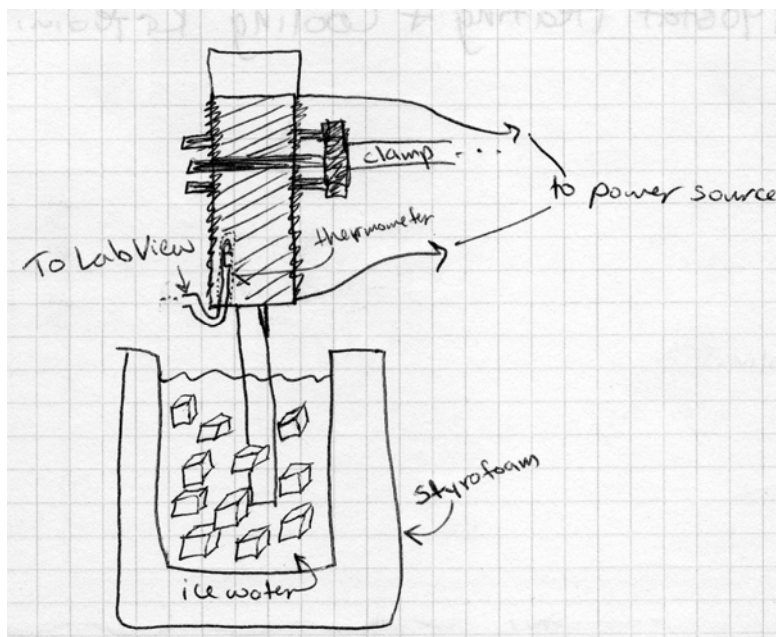 clamp ...
to power source
thermometer
To LabView
styrofoam
ice water